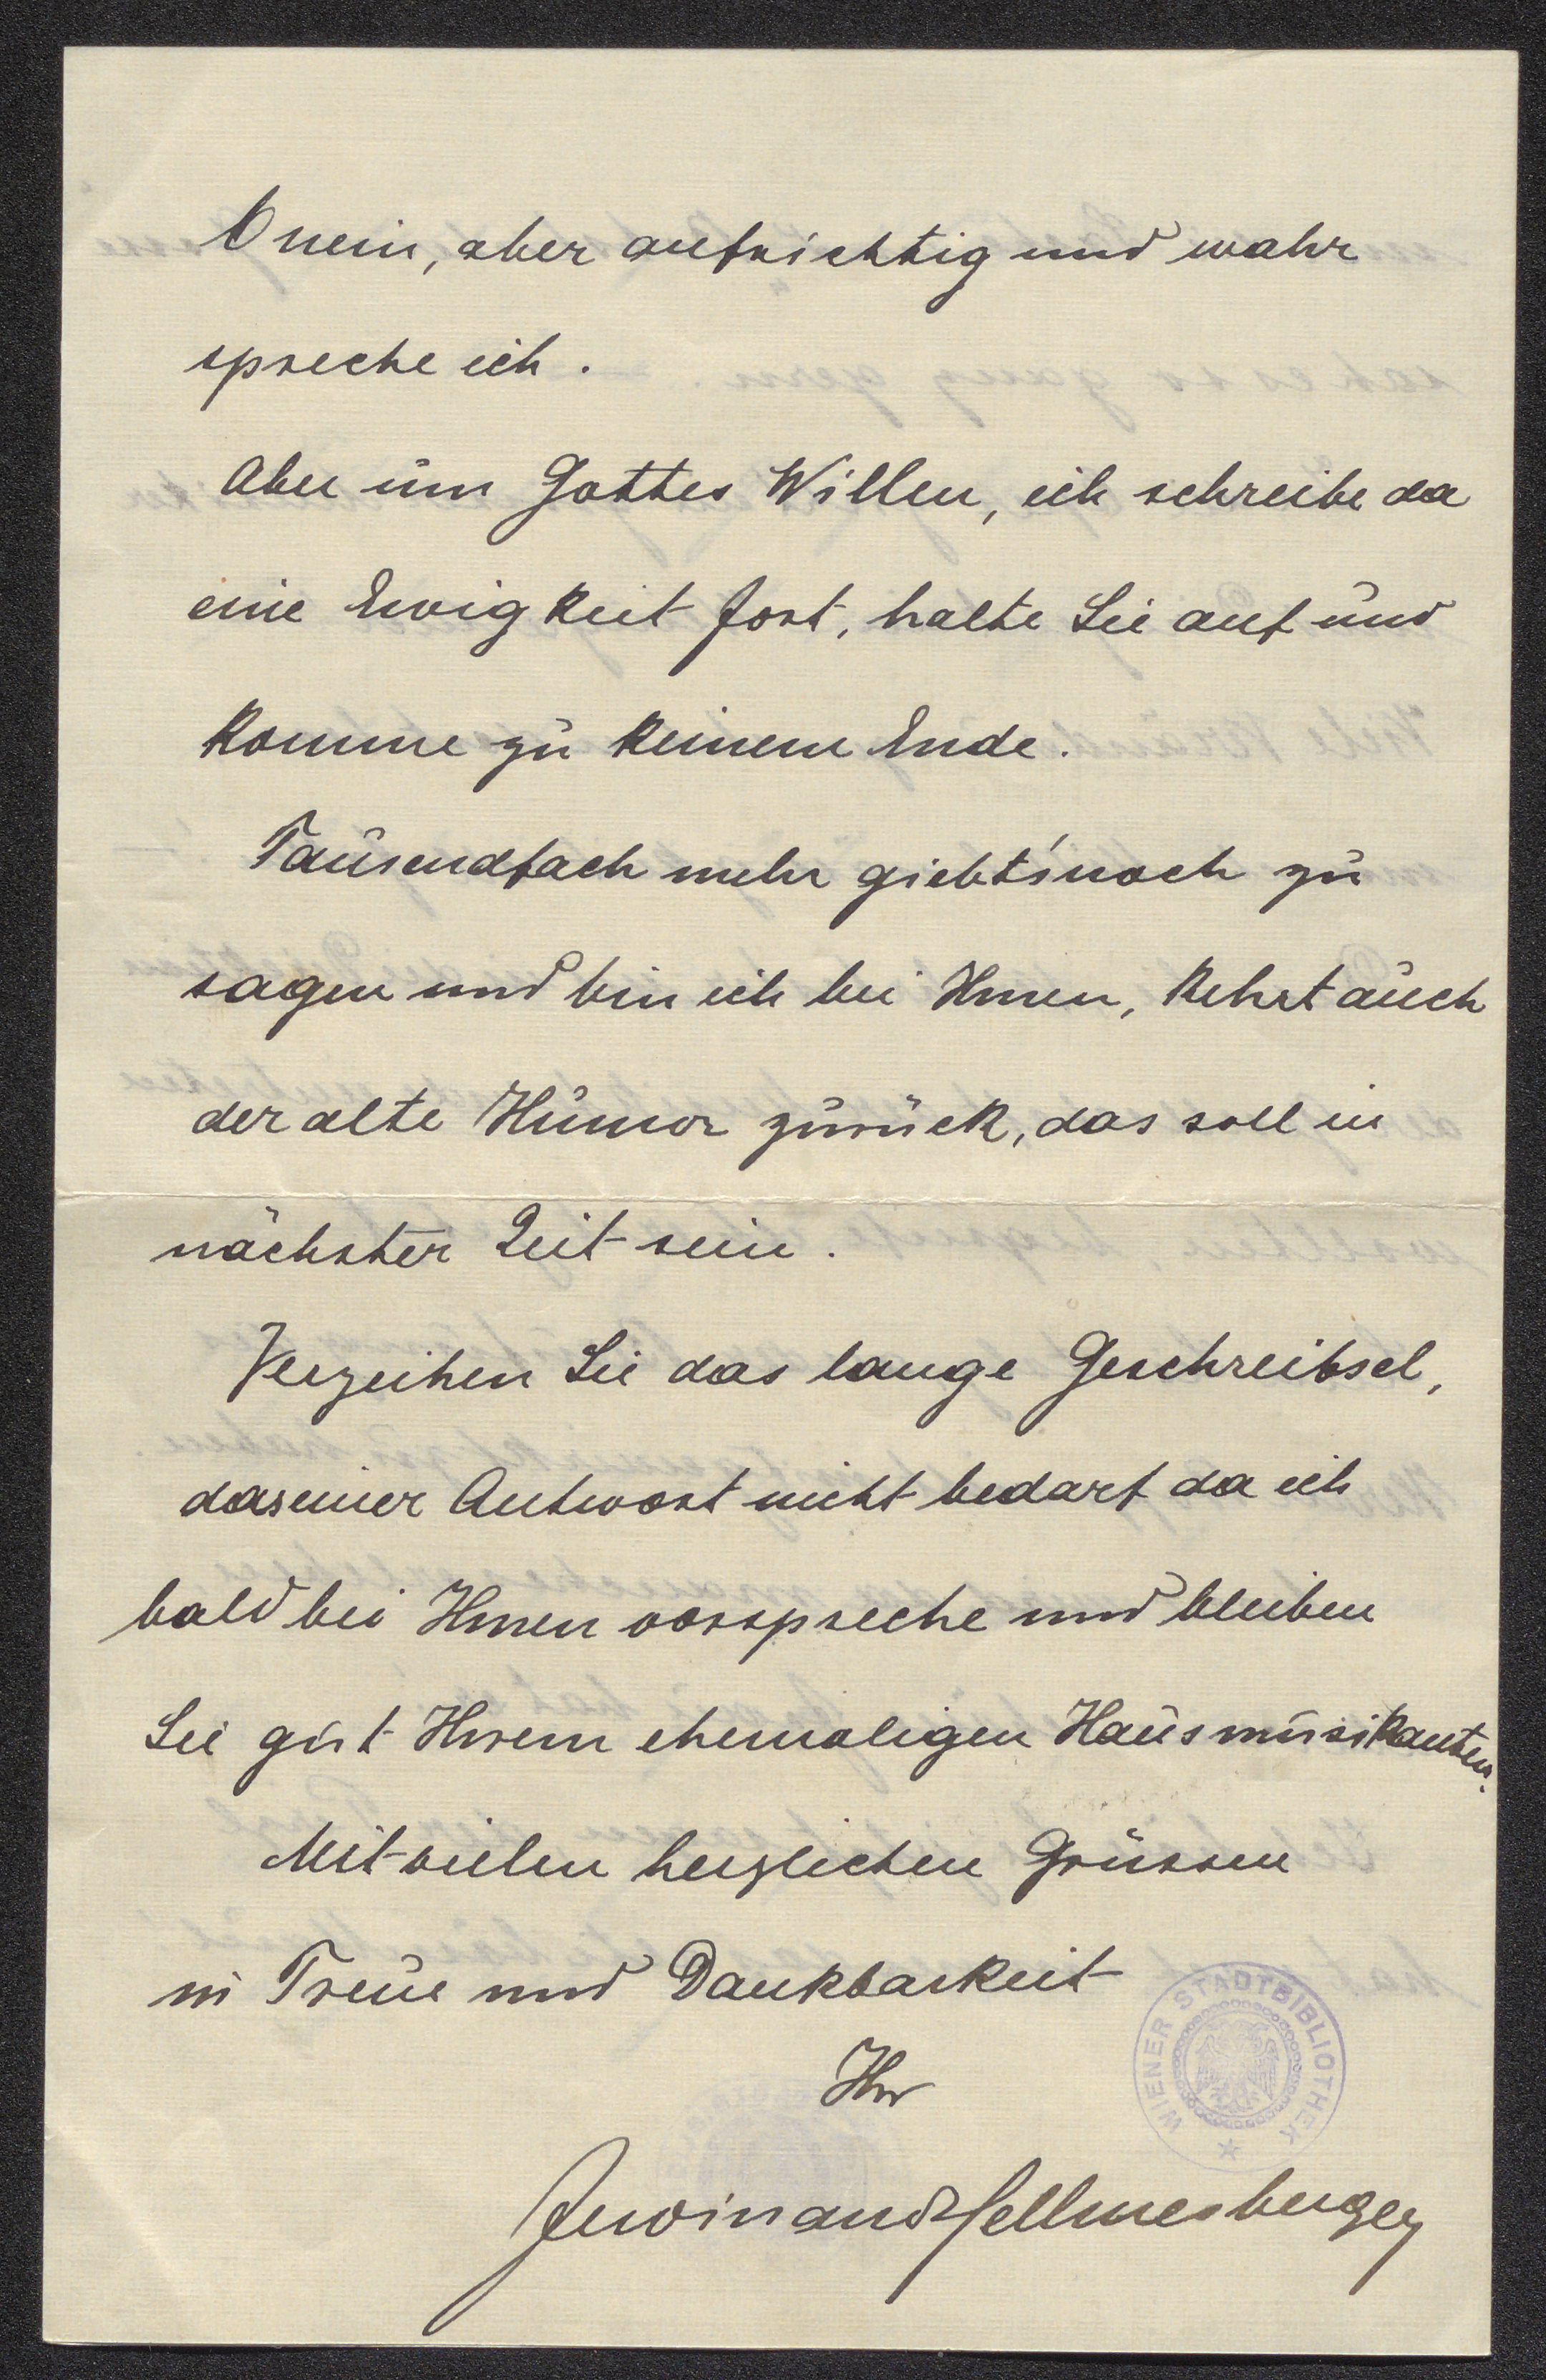 O nein, aber aufrichtig und wahr
spreche ich.
Aber um Gottes Willen, ich schreibe da
eine Ewigkeit fort, halte Sie auf und
komme zu keinem Ende.
Tausendfach mehr giebt's noch zu
sagen und bin ich bei Ihnen, kehrt auch
der alte Humor zurück, das soll in
nächster Zeit sein.
Verzeihen Sie das lange Geschreibsel,
das einer Antwort nicht bedarf da ich
bald bei Ihnen vorspreche und bleiben
Sie gut Ihrem ehemaligen Hausmusikanten.
Mit vielen herzlichen Grüssen
in Treue und Dankbarkeit
Ihr
Ferdinand Hellmesberger
WIENER STADTBIBLIOTHEK